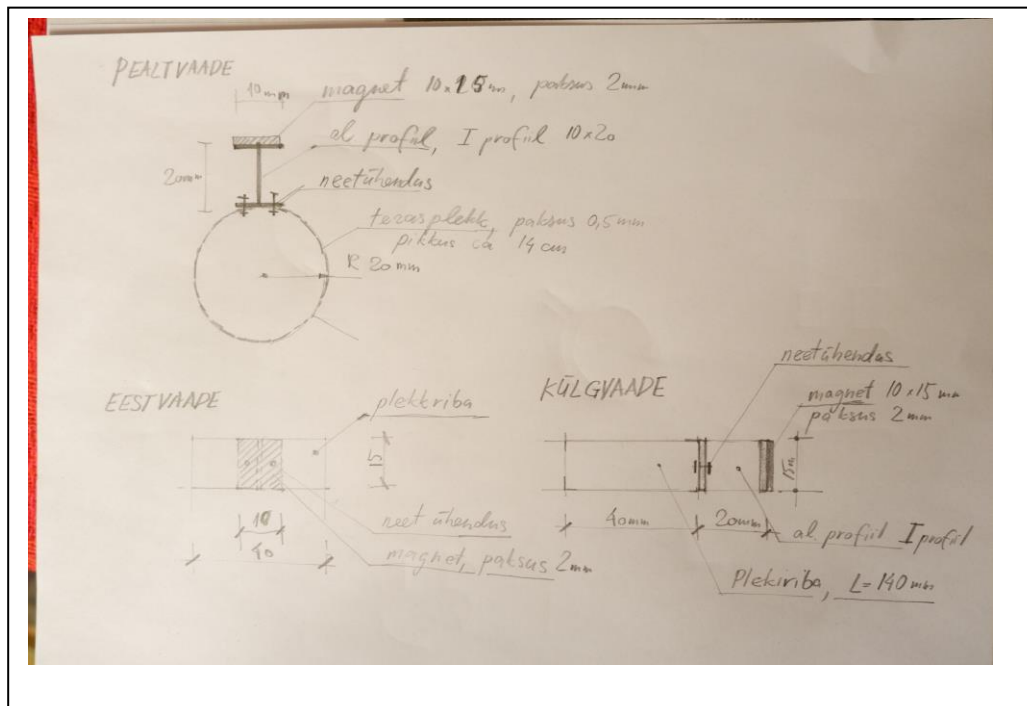 PEALTVAADE
10mm
magnet 10x15mm, paksus 2mm
al profiil, I profiil 10x20
20mm
neetühendus
terasplekk, paksus 0,5mm
pikkus ca 14 cm
R 20mm
EESTVAADE
plekkriba
15
10
40
neet ühendus
magnet, paksus 2mm
KÜLGVAADE
neetühendus
magnet 10x15 mm
paksus 2mm
15m
40mm
20mm
al. profiil I profiil
Plekiriba, L=140mm